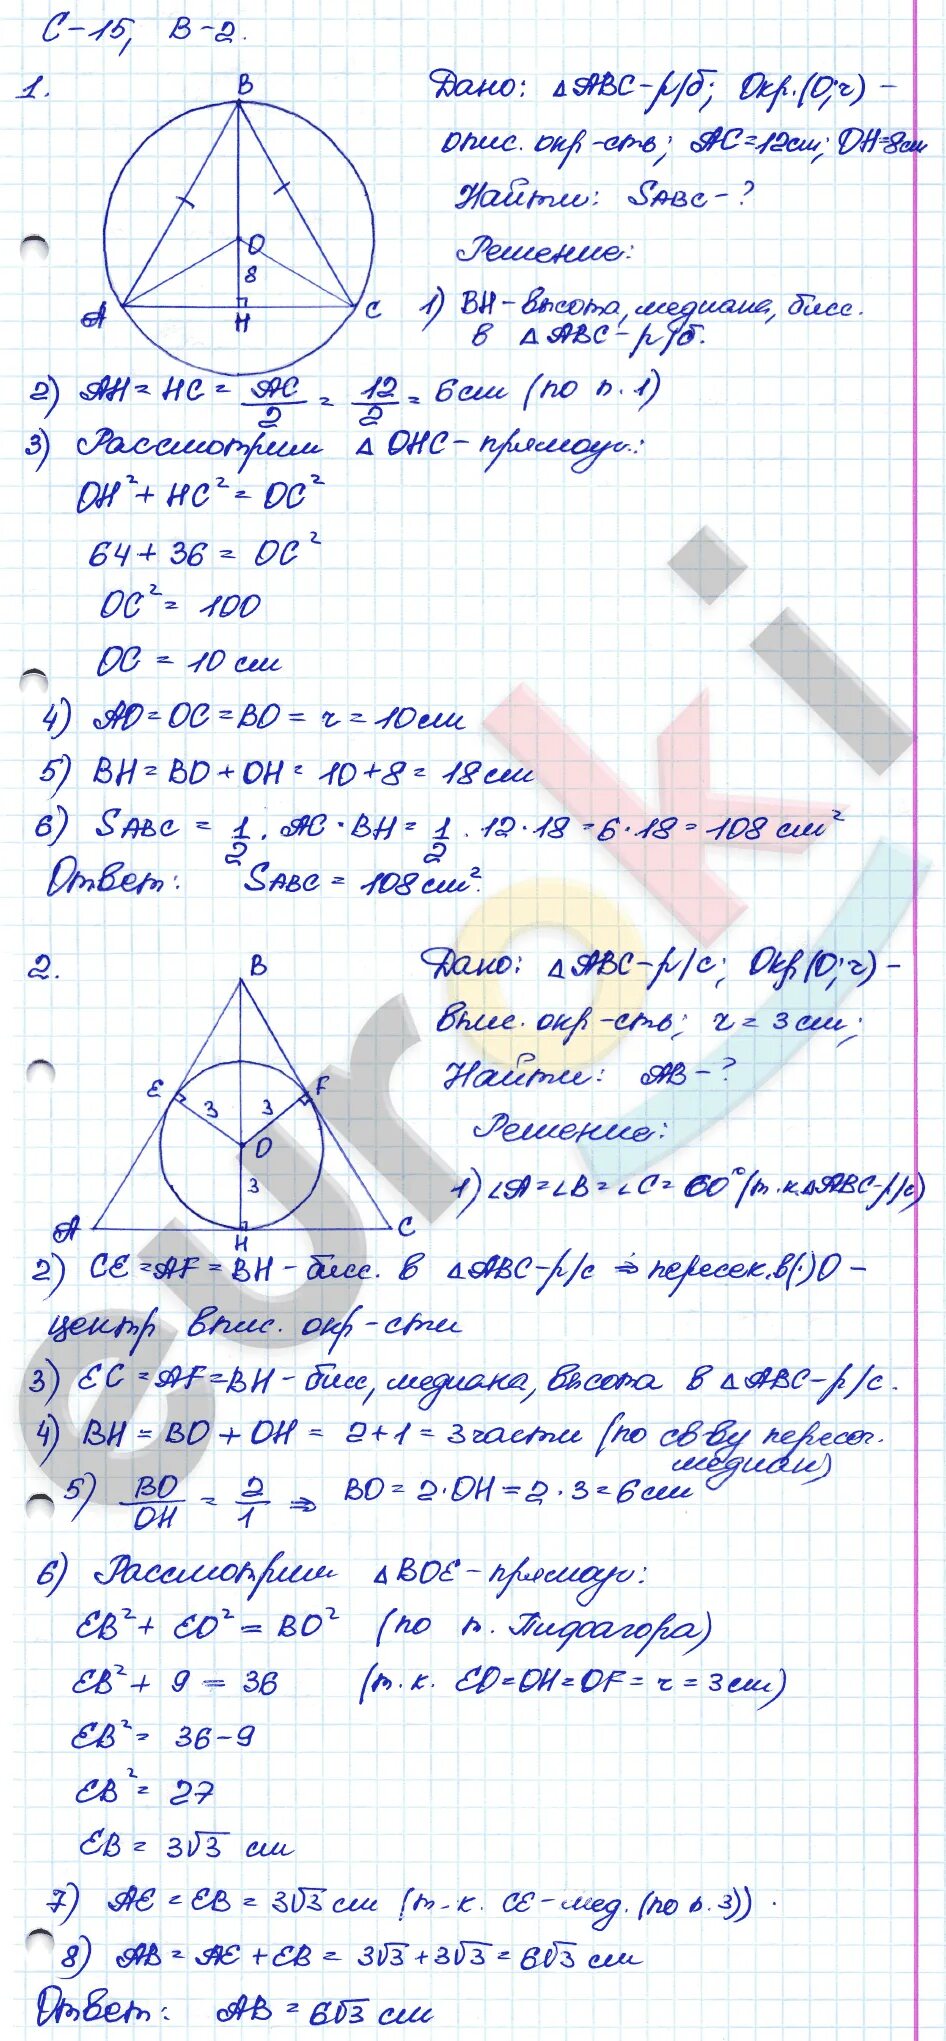 С-15, В-2.
1.
B
O
8
A
H
C
Дано: △ABC-р/б; Окр.(O;r) -
опис. окр-сть; AC=12см; OH=8см
Найти: SABC-?
Решение:
1) BH-высота, медиана, бисс.
в △ABC-р/б.
2) AH = HC = AC/2 = 12/2 = 6см (по п.1)
3) Рассмотрим △OHC-прямоуг.:
OH² + HC² = OC²
64 + 36 = OC²
OC² = 100
OC = 10 см
4) AO=OC=BO = r = 10см
5) BH = BO + OH = 10+8 = 18см
6) SABC = 1/2 · AC · BH = 1/2 · 12 · 18 = 6 · 18 = 108 см²
Ответ: SABC = 108см².
2.
B
E
F
3
3
O
3
A
H
C
Дано: △ABC-р/с; Окр(O;r) -
впис. окр-сть; r = 3см;
Найти: AB-?
Решение:
1) ∠A=∠B=∠C= 60° (т.к.△ABC-р/с)
2) CE=AF=BH-бисс. в △ABC-р/с ⇒ пересек.в(·)O -
центр впис. окр-сти
3) EC=AF=BH-бисс, медиана, высота в △ABC-р/с.
4) BH = BO + OH = 2+1 = 3части (по св-ву пересеч.
медиан)
5) BO/OH = 2/1 ⇒ BO = 2·OH = 2·3 = 6см
6) Рассмотрим △BOE-прямоуг:
EB² + EO² = BO² (по т. Пифагора)
EB² + 9 = 36 (т.к. EO=OH=OF = r = 3см)
EB² = 36-9
EB² = 27
EB = 3√3 см
7) AE = EB = 3√3 см (т.к. CE-мед. (по п.3)).
8) AB = AE + EB = 3√3 + 3√3 = 6√3 см
Ответ: AB = 6√3 см
euroki